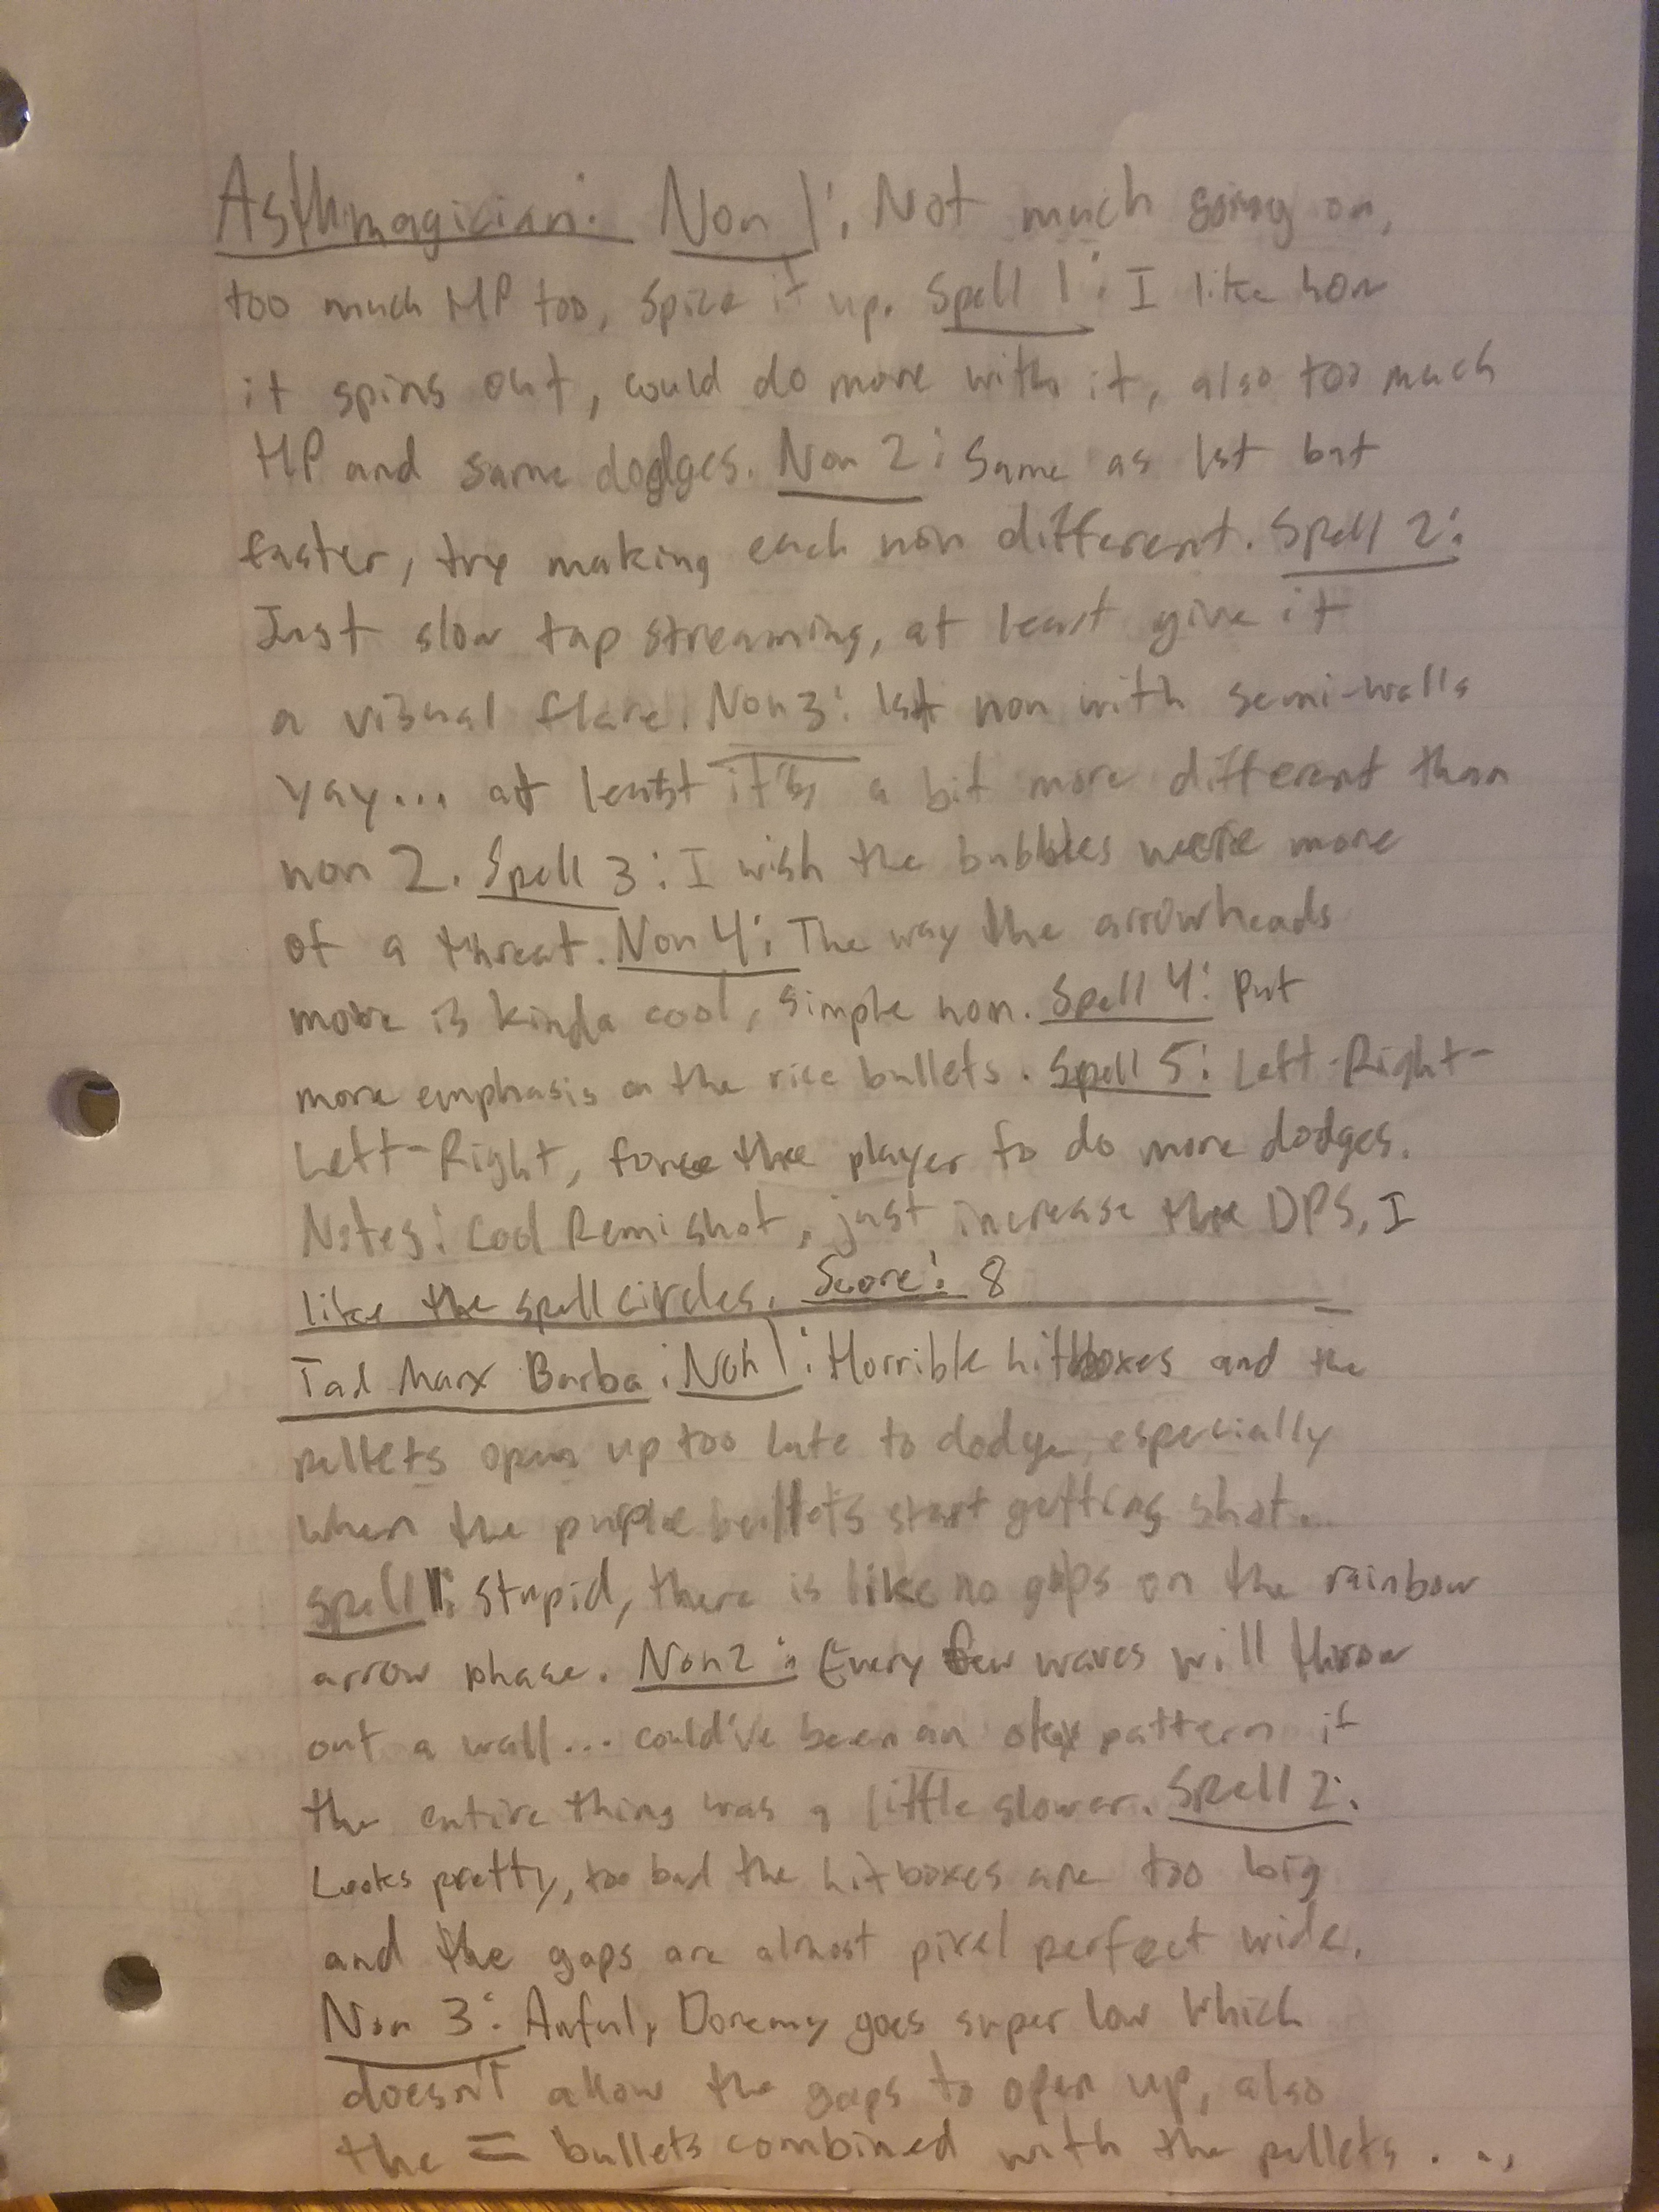 Asthmagician: Non 1: Not much going on,
too much HP too, spice it up. Spell 1: I like how
it spins out, could do more with it, also too much
HP and same dodges. Non 2: Same as 1st but
faster, try making each non different. Spell 2:
Just slow tap streaming, at least give it
a visual flare. Non 3: 1st non with semi-walls
yay... at least it's a bit more different than
non 2. Spell 3: I wish the bubbles were more
of a threat. Non 4: The way the arrowheads
move is kinda cool, simple non. Spell 4: Put
more emphasis on the rice bullets. Spell 5: Left-Right-
Left-Right, force the player to do more dodges.
Notes: Cool Remi shot, just increase the DPS, I
like the spell circles. Score: 8
Tad Marx Barba: Non 1: Horrible hitboxes and the
pellets open up too late to dodge, especially
when the purple bullets start getting shot.
Spell 1: Stupid, there is like no gaps on the rainbow
arrow phase. Non 2: Every few waves will throw
out a wall... could've been an okay pattern if
the entire thing was a little slower. Spell 2:
Looks pretty, too bad the hitboxes are too big
and the gaps are almost pixel perfect wide.
Non 3: Awful, Doremy goes super low which
doesn't allow the gaps to open up, also
the = bullets combined with the pellets...